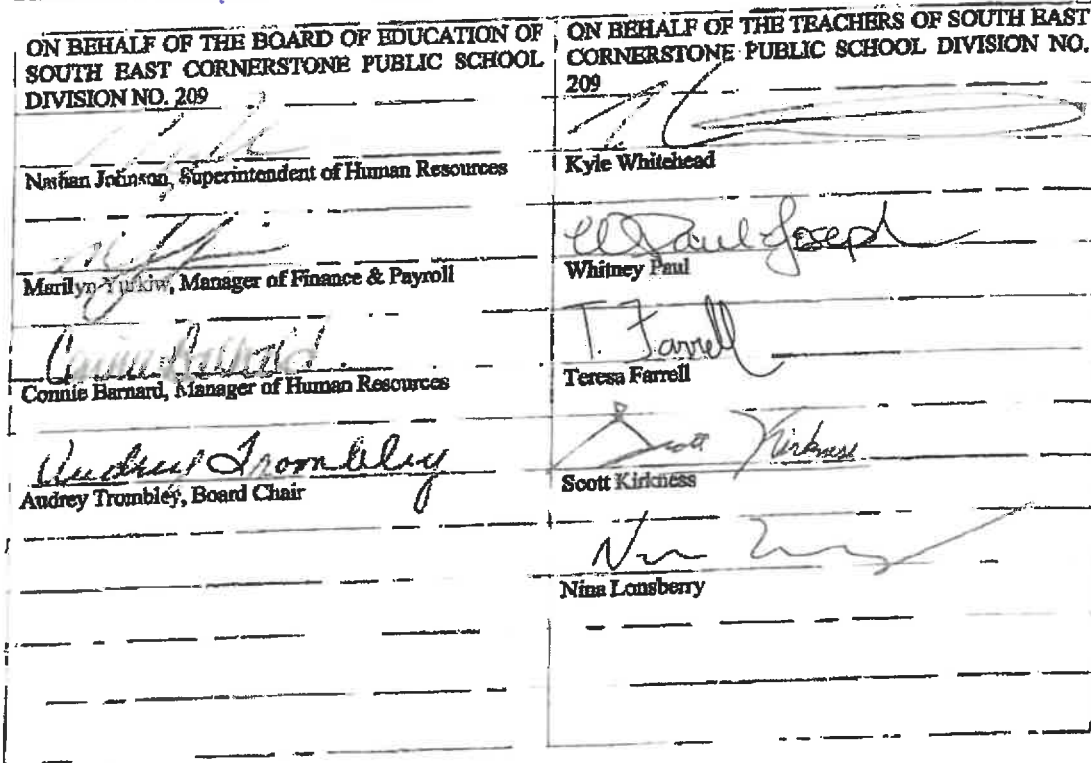 ON BEHALF OF THE BOARD OF EDUCATION OF
SOUTH EAST CORNERSTONE PUBLIC SCHOOL
DIVISION NO. 209
Nathan Johnson, Superintendent of Human Resources
Marilyn Yurkiw, Manager of Finance & Payroll
Connie Barnard, Manager of Human Resources
Audrey Trombley
Audrey Trombley, Board Chair
ON BEHALF OF THE TEACHERS OF SOUTH EAST
CORNERSTONE PUBLIC SCHOOL DIVISION NO.
209
Kyle Whitehead
W Paul Joseph
Whitney Paul
T. Farrell
Teresa Farrell
Scott Kirkness
Scott Kirkness
Nina Lonsberry